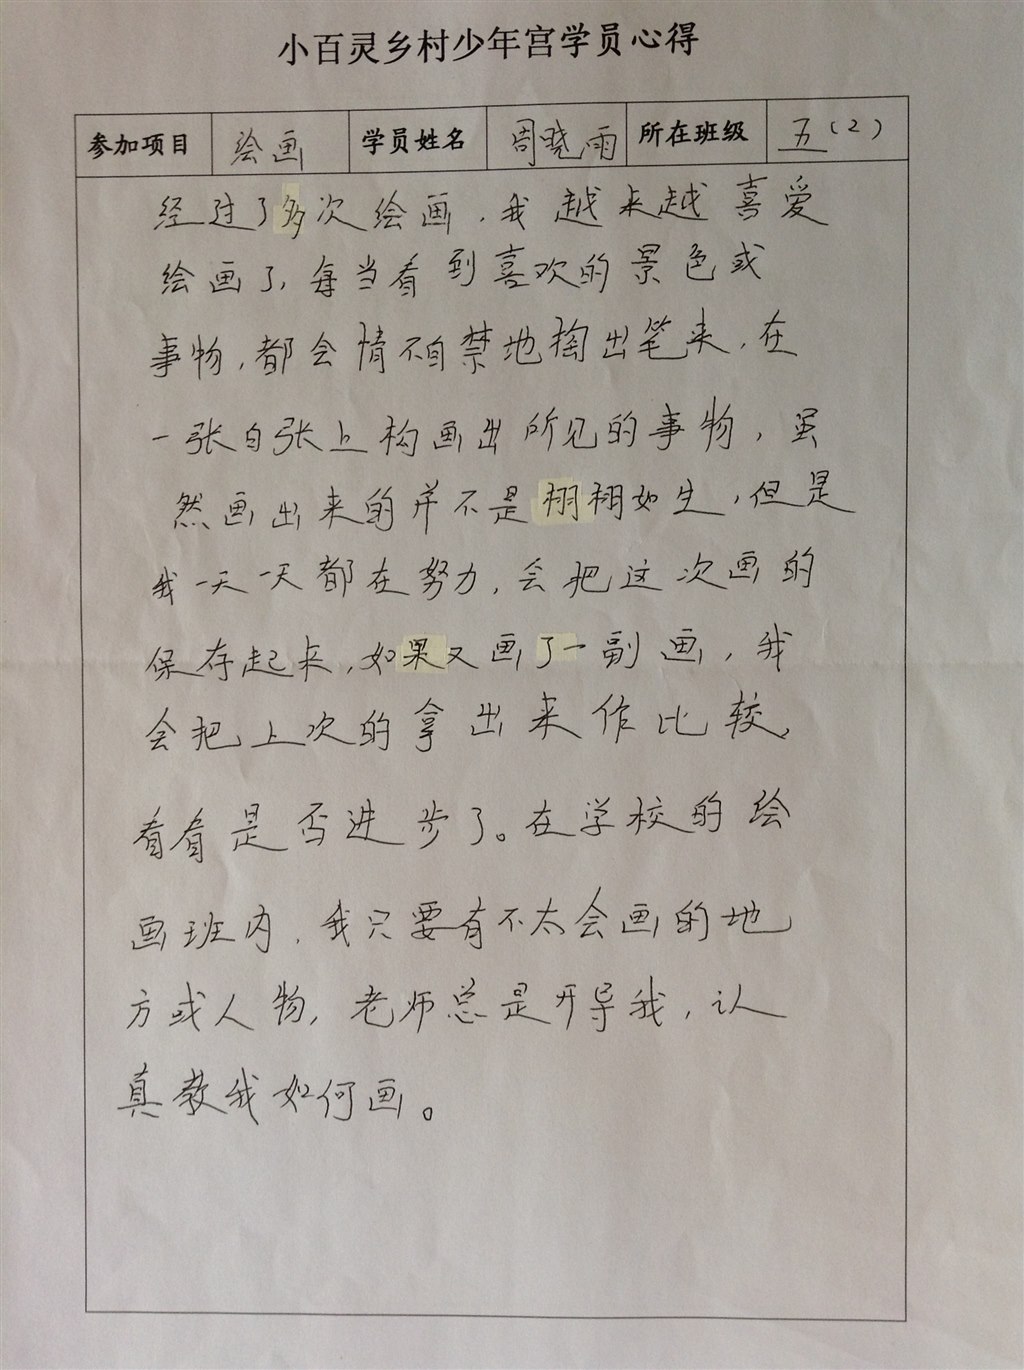 小百灵乡村少年宫学员心得
参加项目 绘画 学员姓名 周晓雨 所在班级 五（2）
经过了多次绘画，我越来越喜爱
绘画了，每当看到喜欢的景色或
事物，都会情不自禁地掏出笔来，在
一张白张上构画出所见的事物，虽
然画出来的并不是栩栩如生，但是
我一天一天都在努力，会把这次画的
保存起来，如果又画了一副画，我
会把上次的拿出来作比较，
看看是否进步了。在学校的绘
画班内，我只要有不太会画的地
方或人物，老师总是开导我，认
真教我如何画。